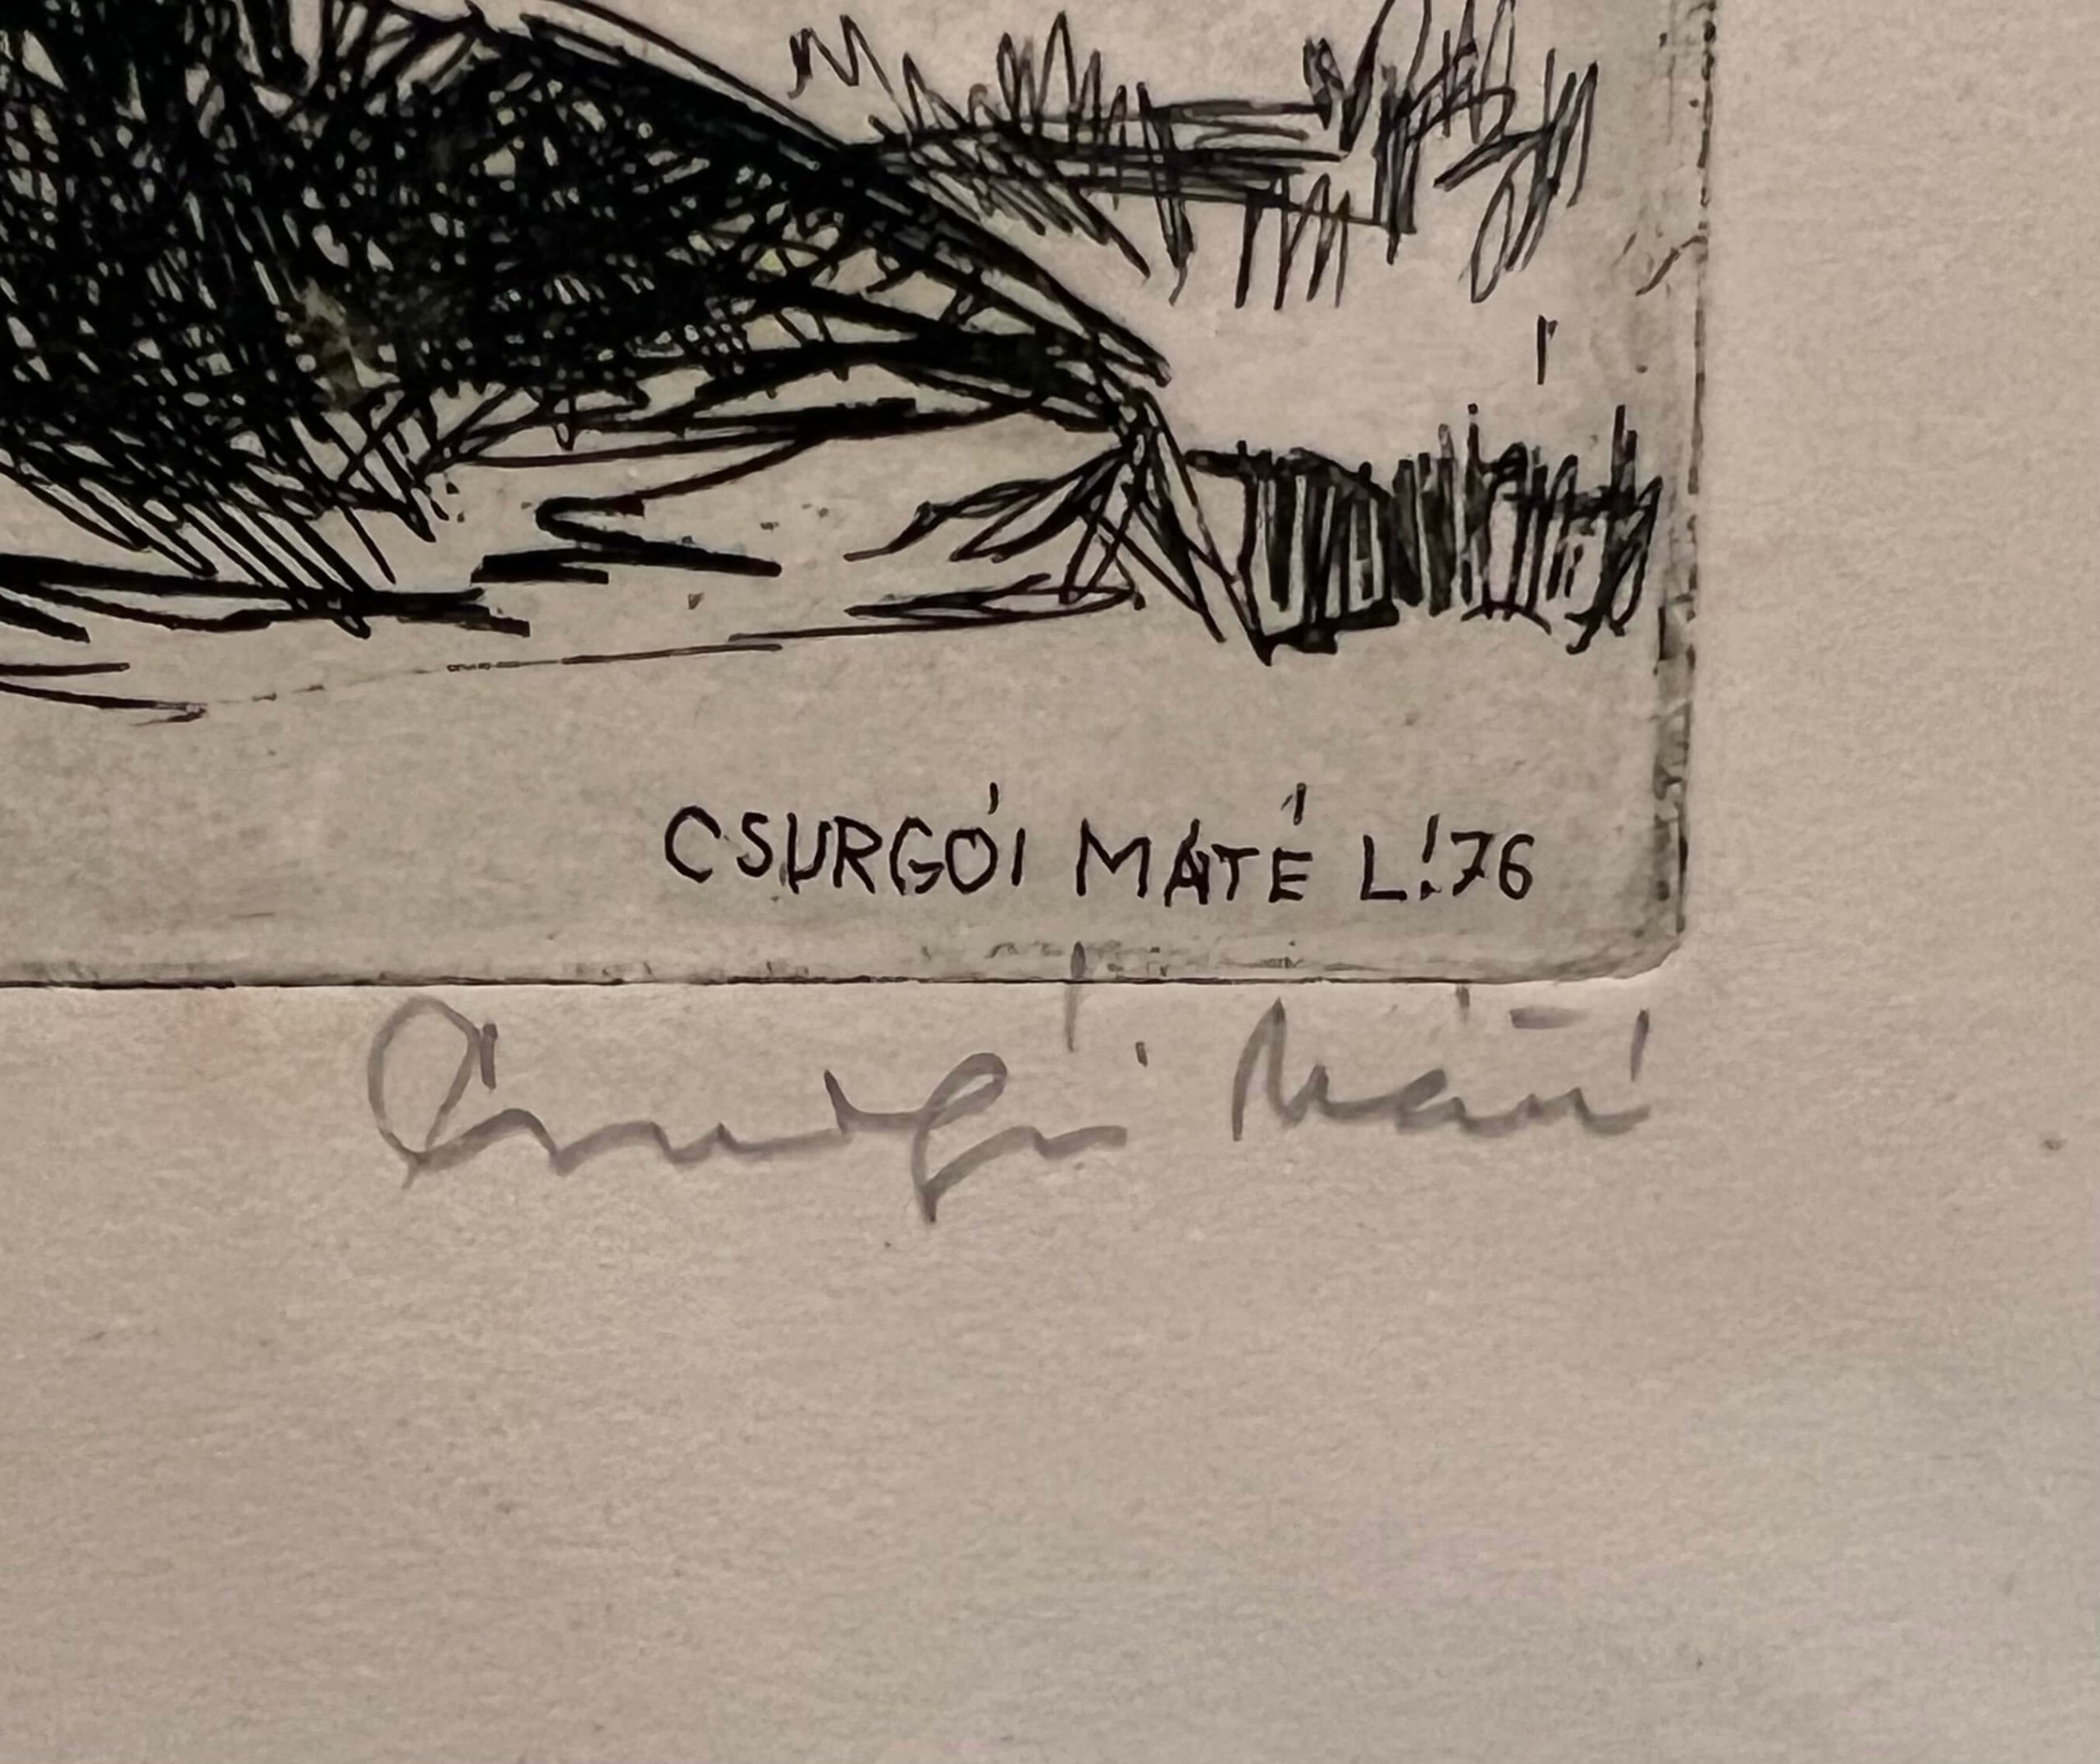 CSURGÓI MÁTÉ L!76
Csurgói Máté